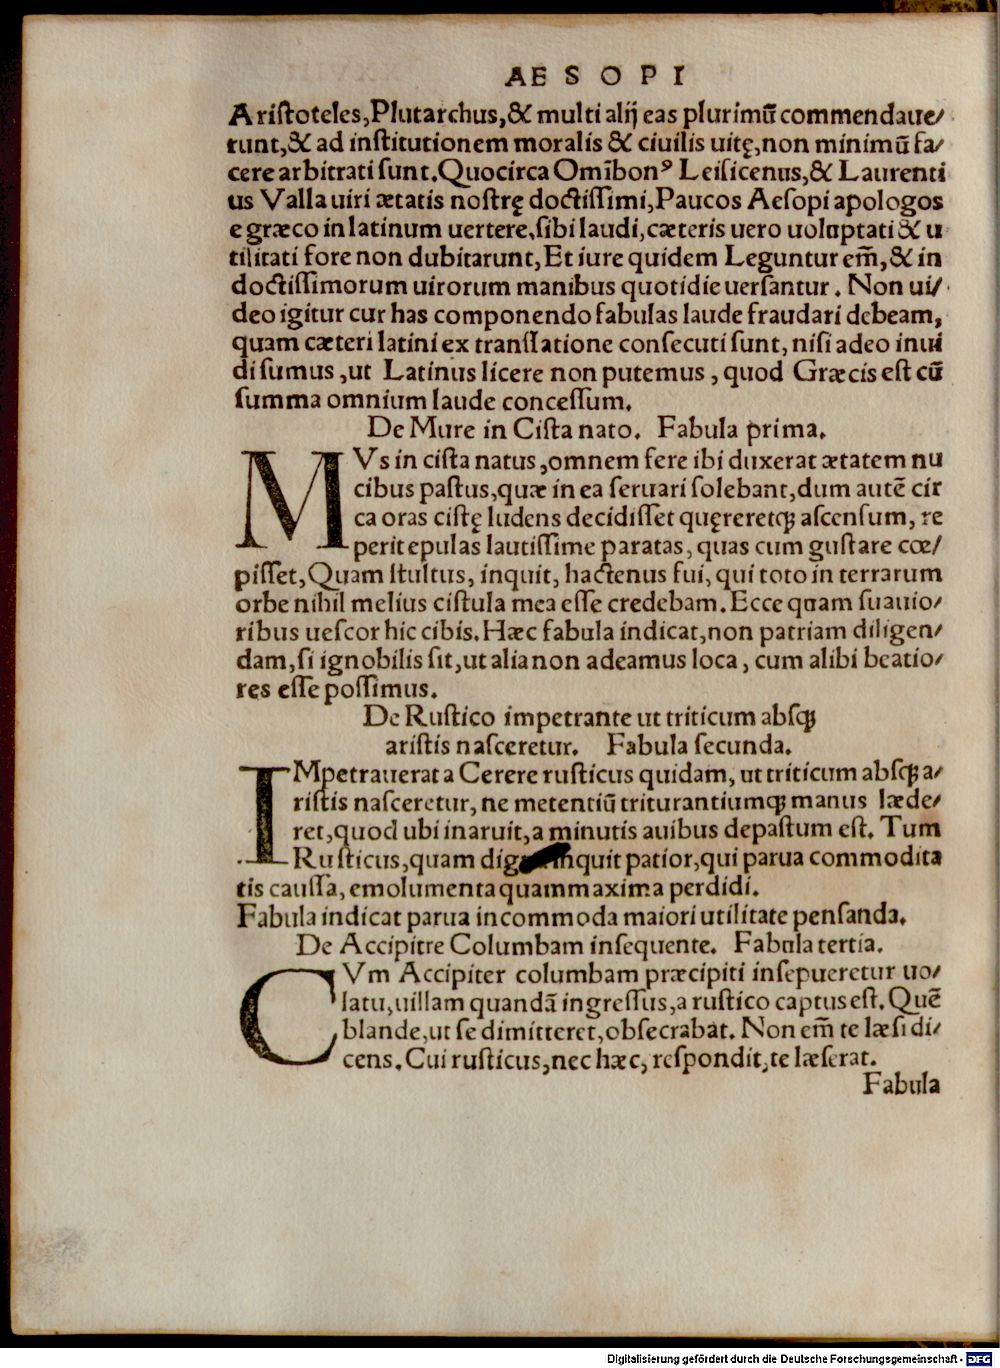 AESOPI
Ariſtoteles,Plutarchus,& multi alij eas plurimū commendaue/
runt,& ad inſtitutionem moralis & ciuilis uitę,non minimū fa/
cere arbitrati ſunt.Quocirca Omībonꝰ Leiſicenus,& Laurenti
us Valla uiri ætatis noſtrę doctiſſimi,Paucos Aeſopi apologos
e græco in latinum uertere,ſibi laudi,cæteris uero uoluptati & u
tilitati fore non dubitarunt,Et iure quidem Leguntur em̄,& in
doctiſſimorum uirorum manibus quotidie uerſantur. Non ui/
deo igitur cur has componendo fabulas laude fraudari debeam,
quam cæteri latini ex tranſlatione conſecuti ſunt, niſi adeo inui
di ſumus ,ut Latinus licere non putemus , quod Græcis eſt cū
ſumma omnium laude conceſſum.
De Mure in Ciſta nato. Fabula prima.
MVs in ciſta natus ,omnem fere ibi duxerat ætatem nu
cibus paſtus,quæ in ea ſeruari ſolebant,dum autē cir
ca oras ciſtę ludens decidiſſet quęreretqꝫ aſcenſum, re
perit epulas lautiſſime paratas, quas cum guſtare cœ/
piſſet,Quam ſtultus, inquit, hactenus fui, qui toto in terrarum
orbe nihil melius ciſtula mea eſſe credebam.Ecce quam ſuauio/
ribus ueſcor hic cibis.Hæc fabula indicat,non patriam diligen/
dam,ſi ignobilis ſit,ut alia non adeamus loca , cum alibi beatio/
res eſſe poſſimus.
De Ruſtico impetrante ut triticum abſqꝫ
ariſtis naſceretur. Fabula ſecunda.
IMpetrauerat a Cerere ruſticus quidam, ut triticum abſqꝫ a/
riſtis naſceretur, ne metentiū triturantiumqꝫ manus læde/
ret,quod ubi inaruit,a minutis auibus depaſtum eſt. Tum
Ruſticus,quam inquit patior,qui parua commodita
tis cauſſa, emolumenta quammaxima perdidi.
Fabula indicat parua incommoda maiori utilitate penſanda.
De Accipitre Columbam inſequente. Fabula tertia.
CVm Accipiter columbam præcipiti inſepueretur uo/
latu,uillam quandā ingreſſus,a ruſtico captus eſt. Quē
blande,ut ſe dimitteret,obſecrabat. Non em̄ te læſi di/
cens.Cui ruſticus,nec hæc, reſpondit,te læſerat.
Fabula
Digitalisierung gefördert durch die Deutsche Forschungsgemeinschaft - DFG